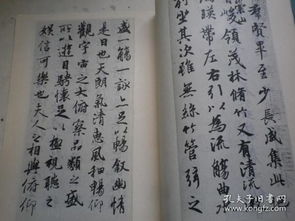 群賢畢至少長咸集此
峻領茂林脩竹又有清流
湍暎帶左右引以為流觴曲
列坐其次雖無絲竹管弦之
盛一觴一詠亦足以暢叙幽情
是日也天朗氣清惠風和暢仰
觀宇宙之大俯察品類之盛
所以遊目騁懷足以極視聽之
娛信可樂也夫人之相與俯仰